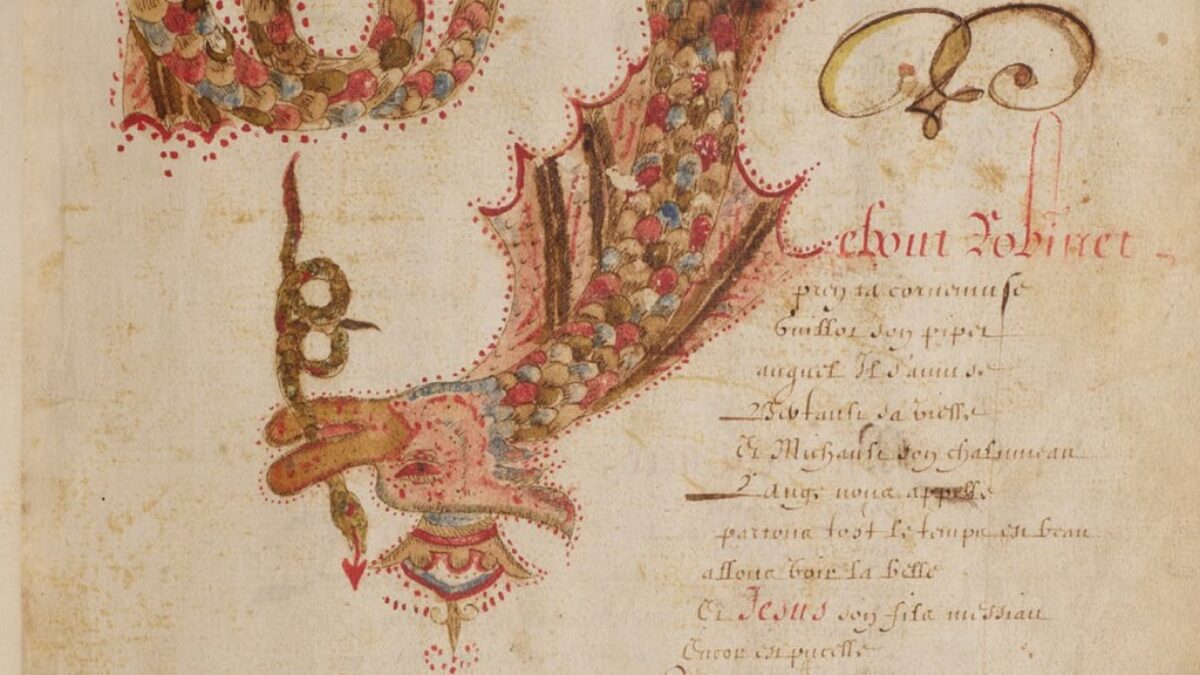 ebout Robinet
pren ta cornemuse
Guillot son pipet
auquel Il s'amuse
sa vielle
Et Michault son chalumeau
L'ange nous appelle
partons tost le temps est beau
allons voir la belle
Et Jesus son filz messiau
Encor est pucelle